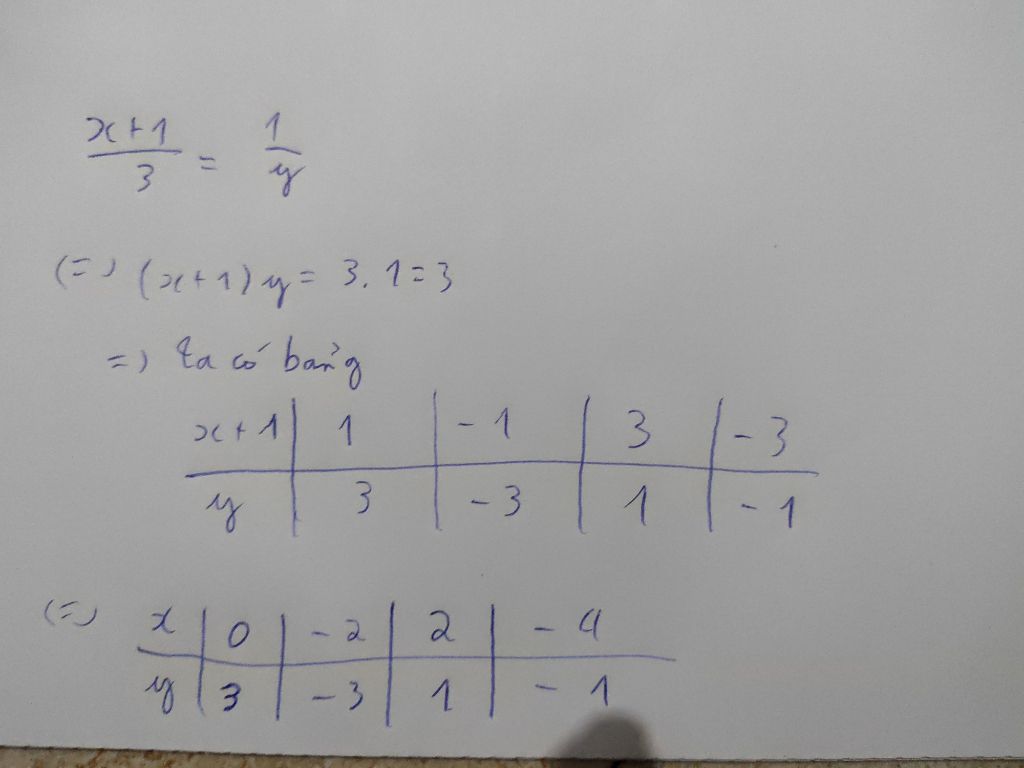 x+1/3 = 1/y
(=) (x+1)y = 3.1=3
=) ta có bảng
x+1 | 1 | -1 | 3 | -3
y | 3 | -3 | 1 | -1
(=) x | 0 | -2 | 2 | -4
y | 3 | -3 | 1 | -1